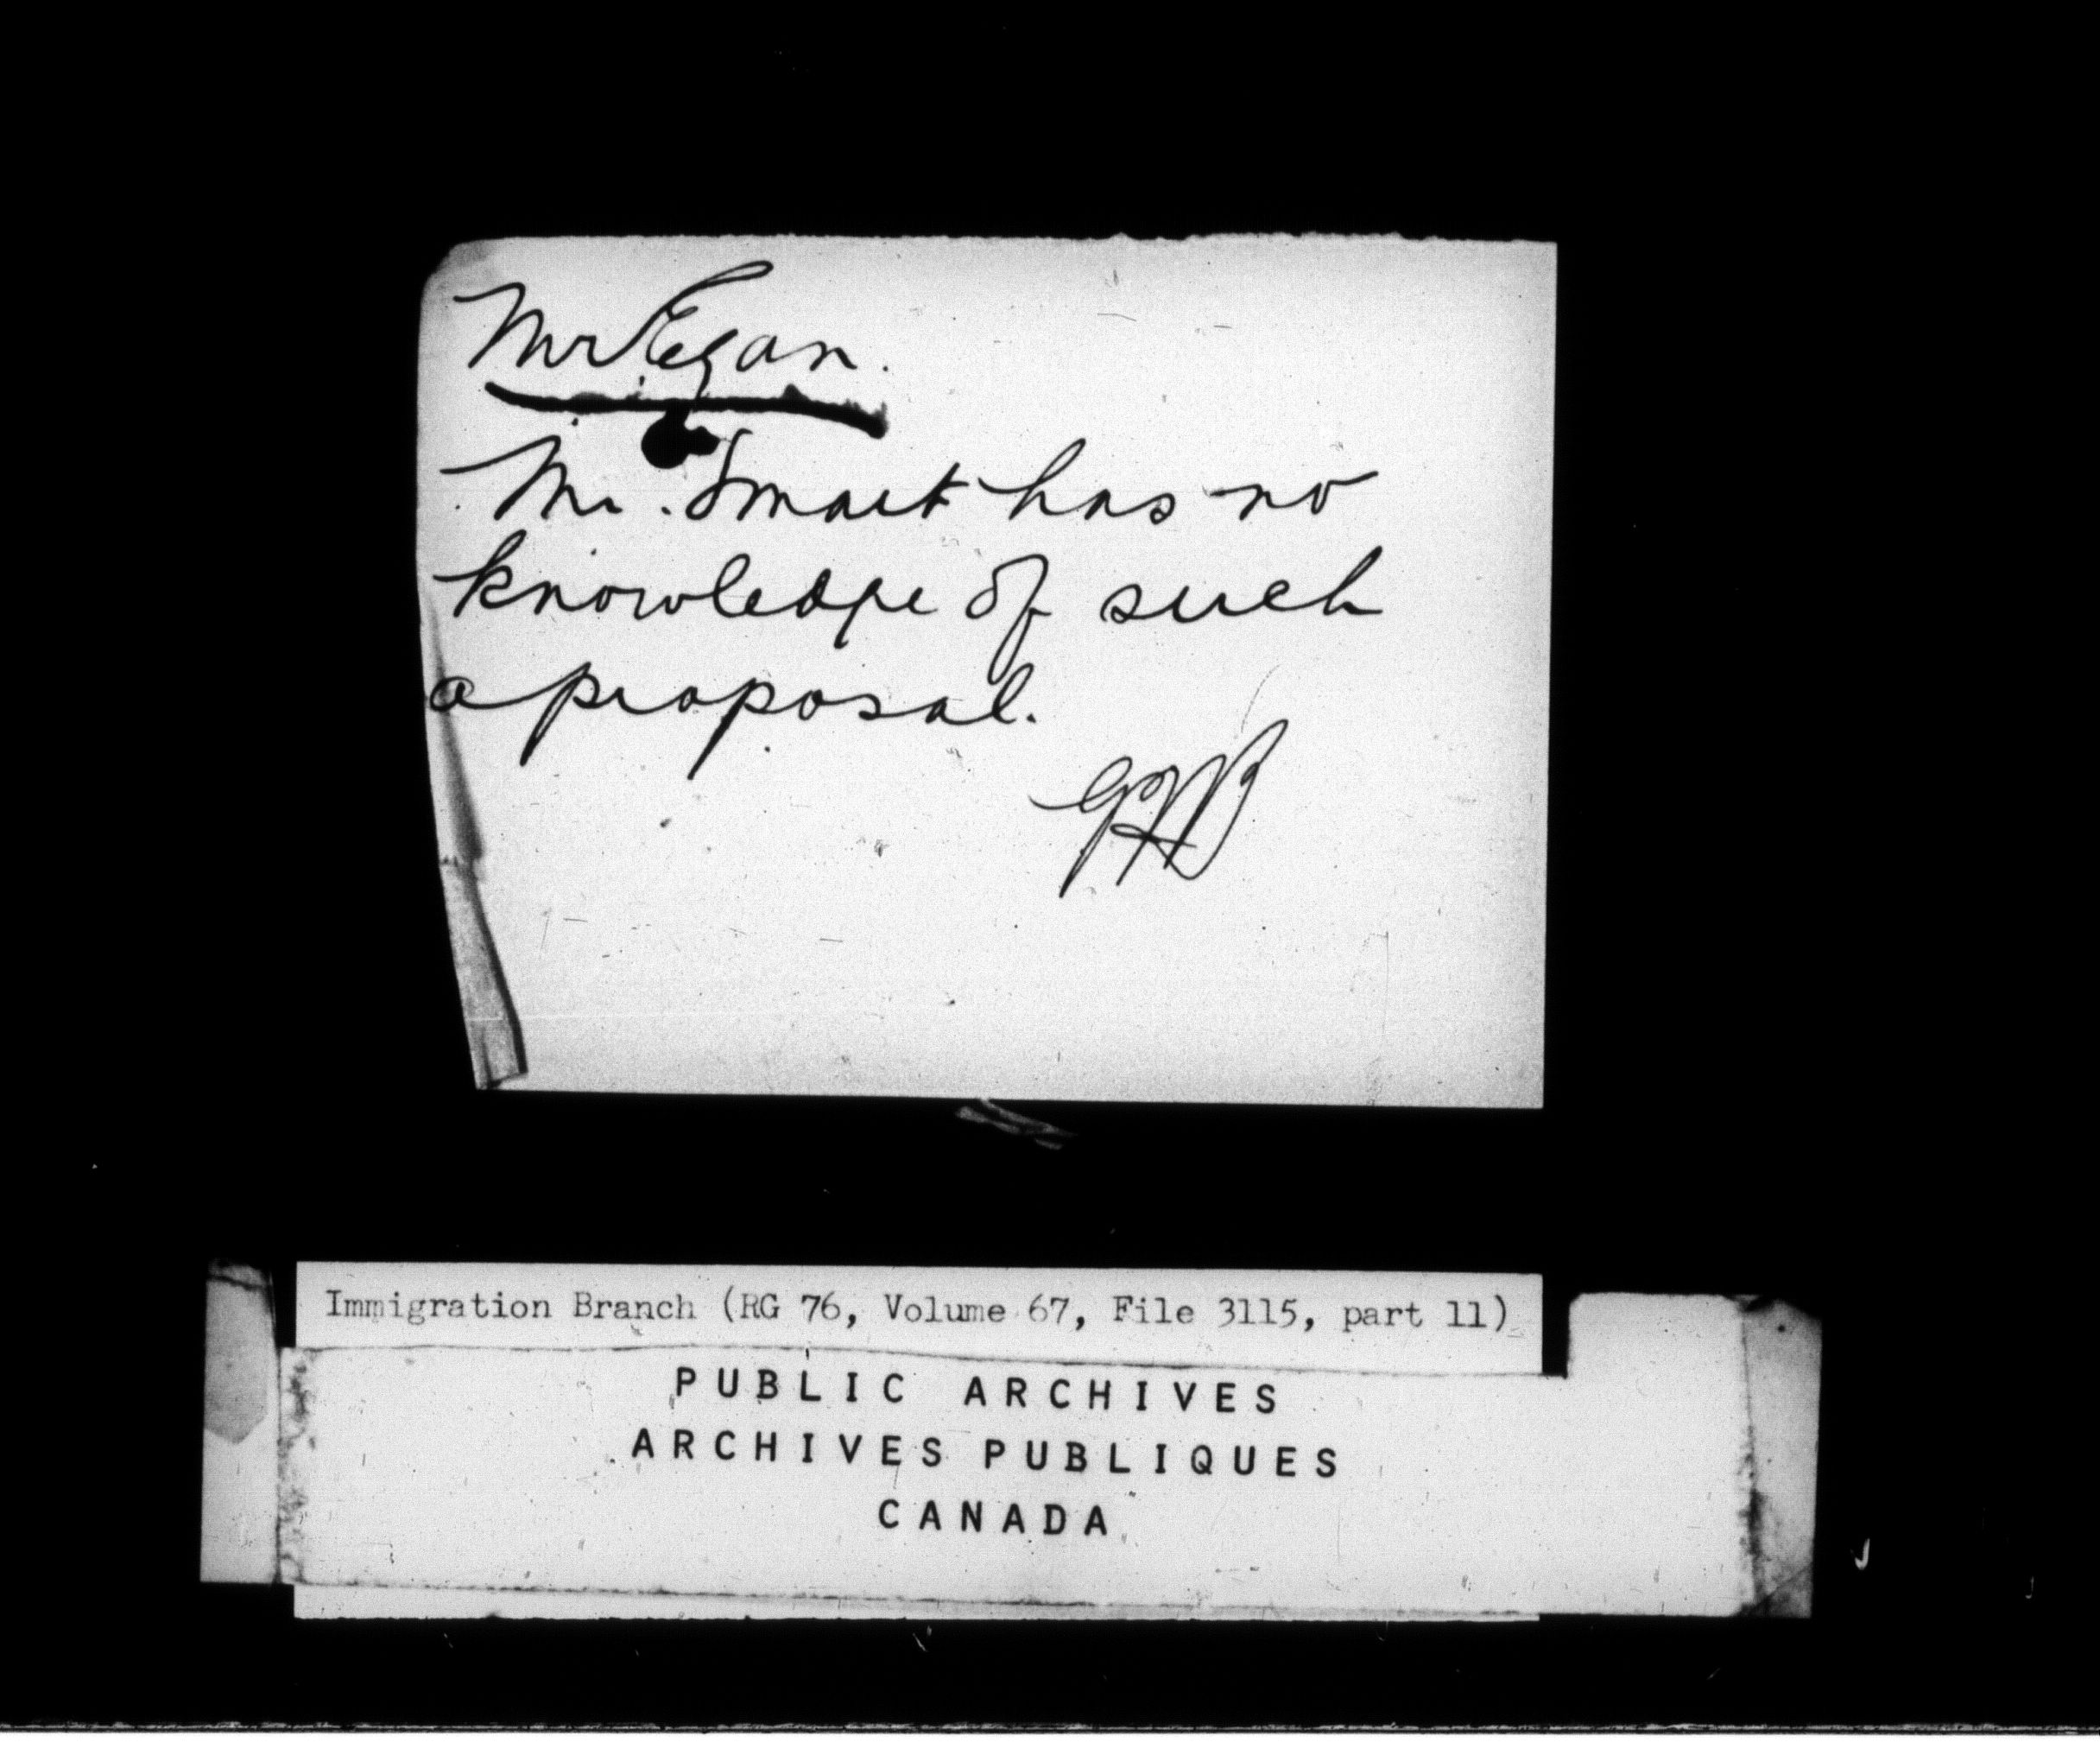 Mr Egan.
Mr. Smart has no
knowledge of such
a proposal.
Immigration Branch (RG 76, Volume 67, File 3115, part 11)
PUBLIC ARCHIVES
ARCHIVES PUBLIQUES
CANADA